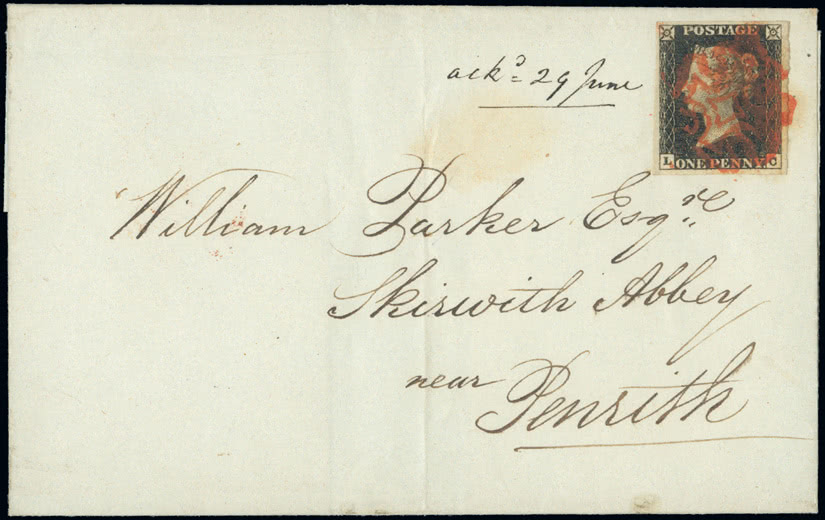 POSTAGE
L ONE PENNY. C
ackd= 29 June
William Parker Esqre.
Skirwith Abbey
near
Penrith